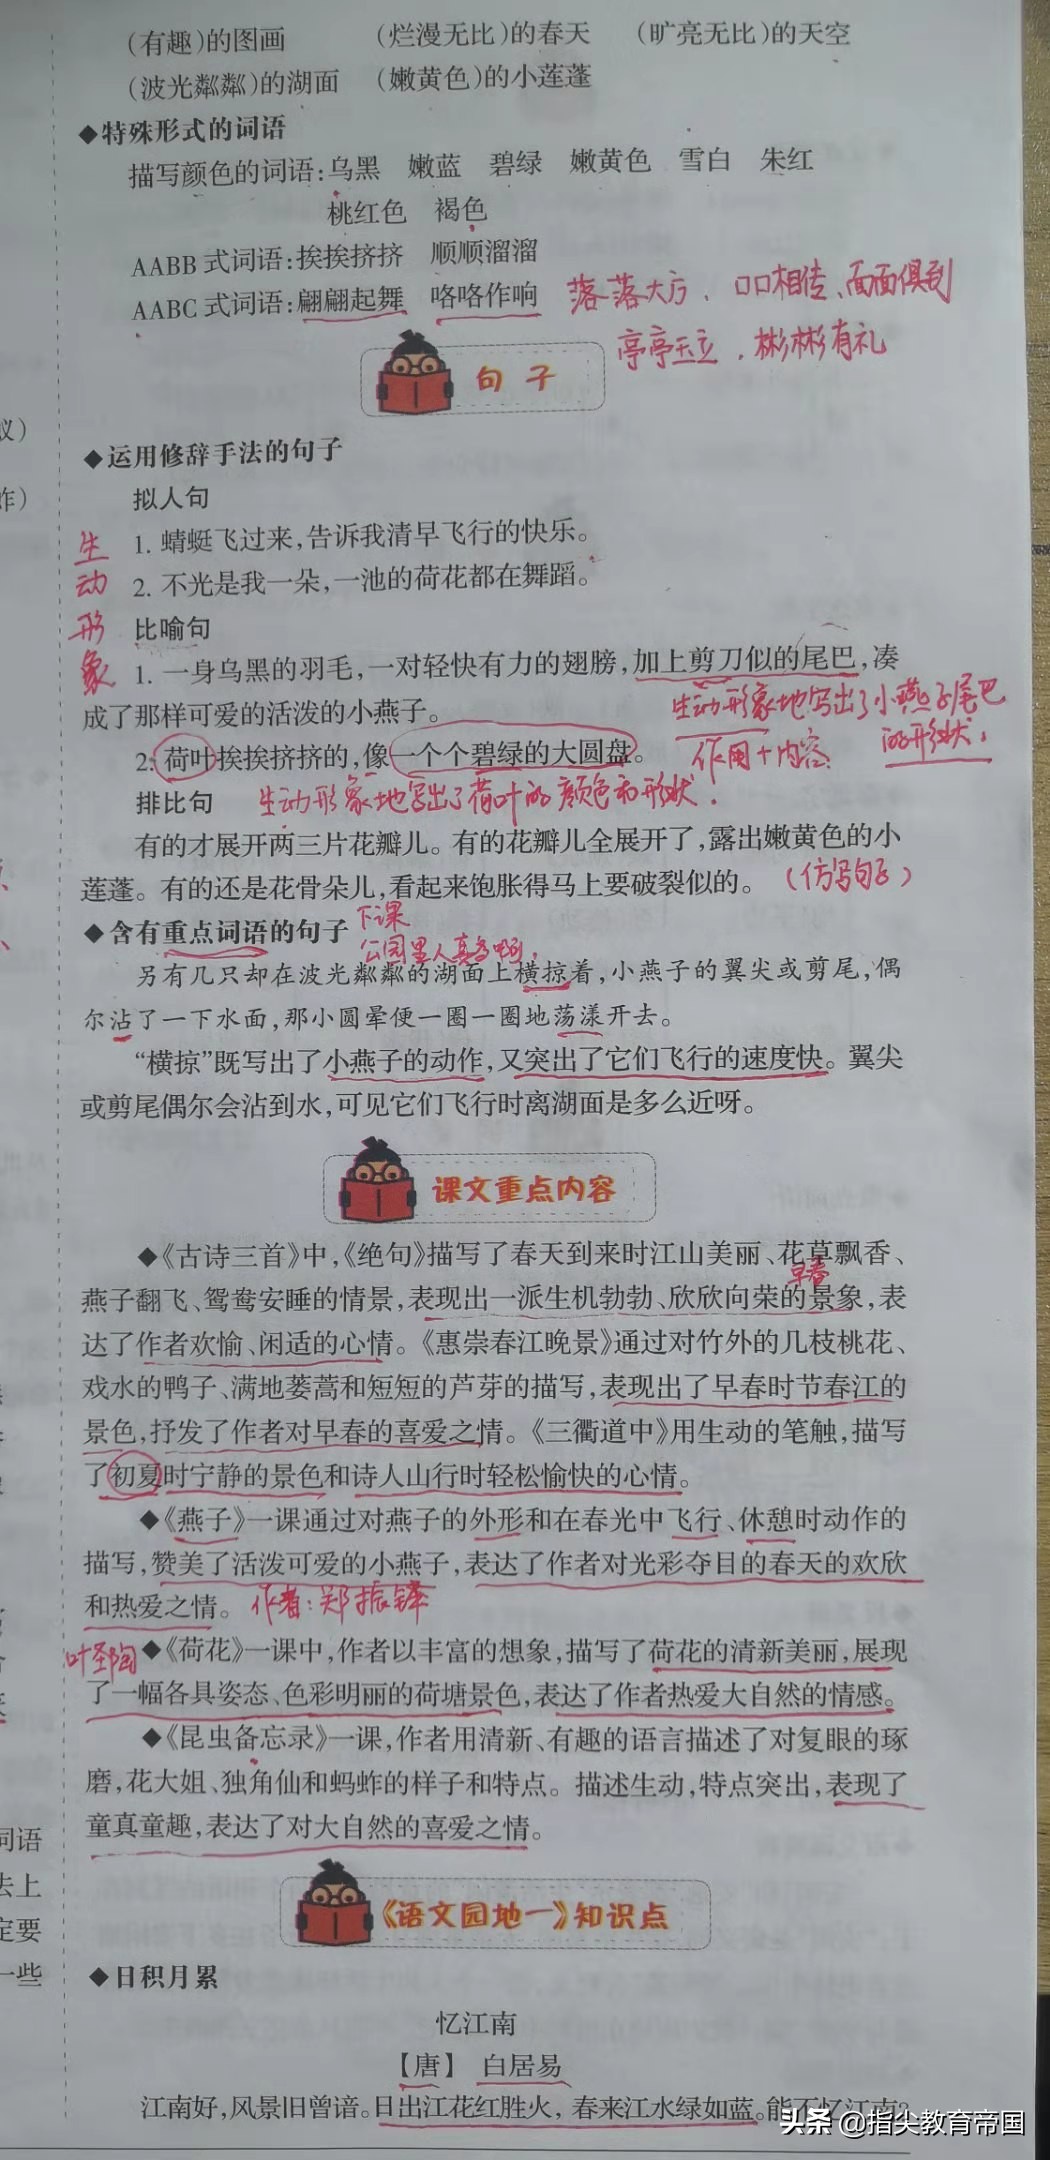 (有趣)的图画 (烂漫无比)的春天 (旷亮无比)的天空
(波光粼粼)的湖面 (嫩黄色)的小莲蓬
◆特殊形式的词语
描写颜色的词语:乌黑 嫩蓝 碧绿 嫩黄色 雪白 朱红
桃红色 褐色
AABB 式词语:挨挨挤挤 顺顺溜溜
AABC 式词语:翩翩起舞 咯咯作响 落落大方、口口相传、面面俱到
亭亭玉立、彬彬有礼
句子
蚁)
◆运用修辞手法的句子
拟人句
生动形象
1. 蜻蜓飞过来,告诉我清早飞行的快乐。
2. 不光是我一朵,一池的荷花都在舞蹈。
比喻句
1. 一身乌黑的羽毛,一对轻快有力的翅膀,加上剪刀似的尾巴,凑
成了那样可爱的活泼的小燕子。
生动形象地写出了小燕子尾巴
的形状。
作用+内容
2. 荷叶挨挨挤挤的,像一个个碧绿的大圆盘。
排比句 生动形象地写出了荷叶的颜色和形状.
有的才展开两三片花瓣儿。有的花瓣儿全展开了,露出嫩黄色的小
莲蓬。有的还是花骨朵儿,看起来饱胀得马上要破裂似的。 (仿写句子)
◆含有重点词语的句子 下课
公园里人真多啊,
另有几只却在波光粼粼的湖面上横掠着,小燕子的翼尖或剪尾,偶
尔沾了一下水面,那小圆晕便一圈一圈地荡漾开去。
“横掠”既写出了小燕子的动作,又突出了它们飞行的速度快。翼尖
或剪尾偶尔会沾到水,可见它们飞行时离湖面是多么近呀。
课文重点内容
◆《古诗三首》中,《绝句》描写了春天到来时江山美丽、花草飘香、
早春
燕子翻飞、鸳鸯安睡的情景,表现出一派生机勃勃、欣欣向荣的景象,表
达了作者欢愉、闲适的心情。《惠崇春江晚景》通过对竹外的几枝桃花、
戏水的鸭子、满地蒌蒿和短短的芦芽的描写,表现出了早春时节春江的
景色,抒发了作者对早春的喜爱之情。《三衢道中》用生动的笔触,描写
了初夏时宁静的景色和诗人山行时轻松愉快的心情。
◆《燕子》一课通过对燕子的外形和在春光中飞行、休憩时动作的
描写,赞美了活泼可爱的小燕子,表达了作者对光彩夺目的春天的欢欣
和热爱之情。 作者:郑振铎
叶圣陶 ◆《荷花》一课中,作者以丰富的想象,描写了荷花的清新美丽,展现
了一幅各具姿态、色彩明丽的荷塘景色,表达了作者热爱大自然的情感。
◆《昆虫备忘录》一课,作者用清新、有趣的语言描述了对复眼的琢
磨,花大姐、独角仙和蚂蚱的样子和特点。描述生动,特点突出,表现了
童真童趣,表达了对大自然的喜爱之情。
词语
去上
定要
一些
《语文园地一》知识点
◆日积月累
忆江南
【唐】 白居易
江南好,风景旧曾谙。日出江花红胜火,春来江水绿如蓝。能不忆江南?
头条 @指尖教育帝国